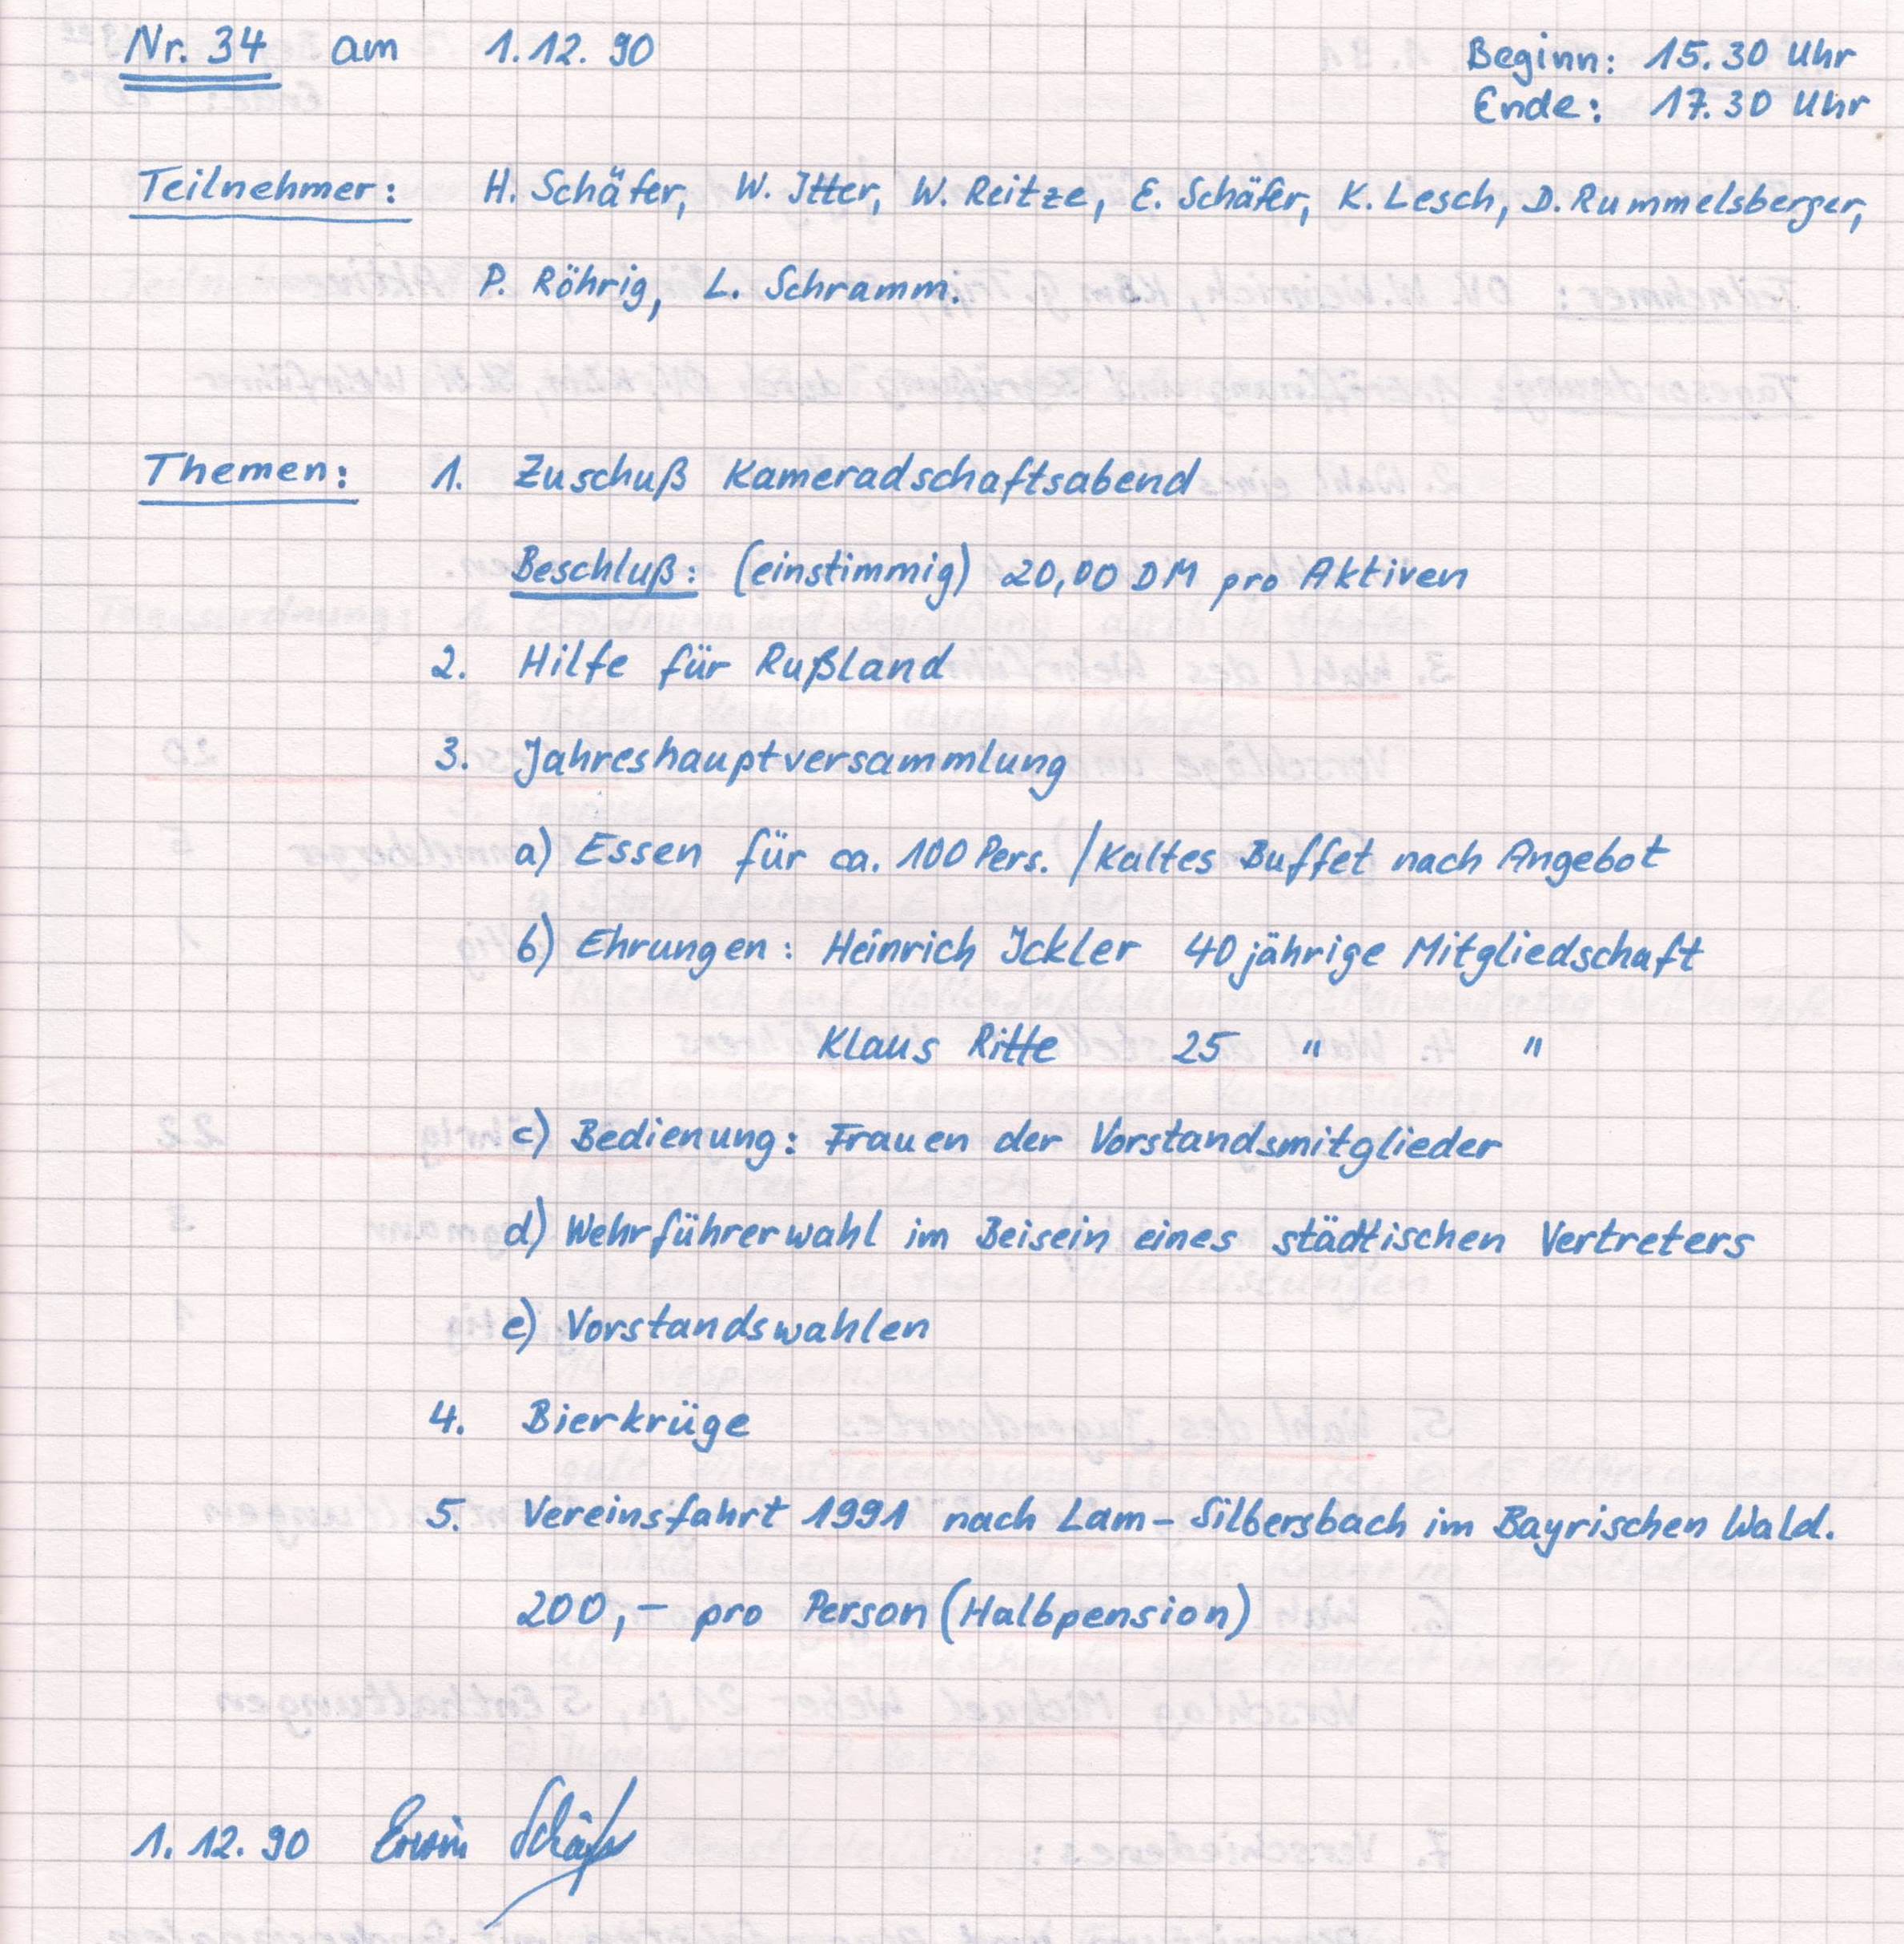 Nr. 34 am 1.12.90 Beginn: 15.30 Uhr
Ende: 17.30 Uhr
Teilnehmer: H. Schäfer, W. Itter, W. Reitze, E. Schäfer, K. Lesch, D. Rummelsberger,
P. Röhrig, L. Schramm.
Themen: 1. Zuschuß Kameradschaftsabend
Beschluß: (einstimmig) 20,00 DM pro Aktiven
2. Hilfe für Rußland
3. Jahreshauptversammlung
a) Essen für ca. 100 Pers. / Kaltes Buffet nach Angebot
b) Ehrungen: Heinrich Ickler 40 jährige Mitgliedschaft
Klaus Ritte 25 " "
c) Bedienung: Frauen der Vorstandsmitglieder
d) Wehrführerwahl im Beisein eines städtischen Vertreters
e) Vorstandswahlen
4. Bierkrüge
5. Vereinsfahrt 1991 nach Lam - Silbersbach im Bayrischen Wald.
200,- pro Person (Halbpension)
1.12.90 Erwin Schäfer